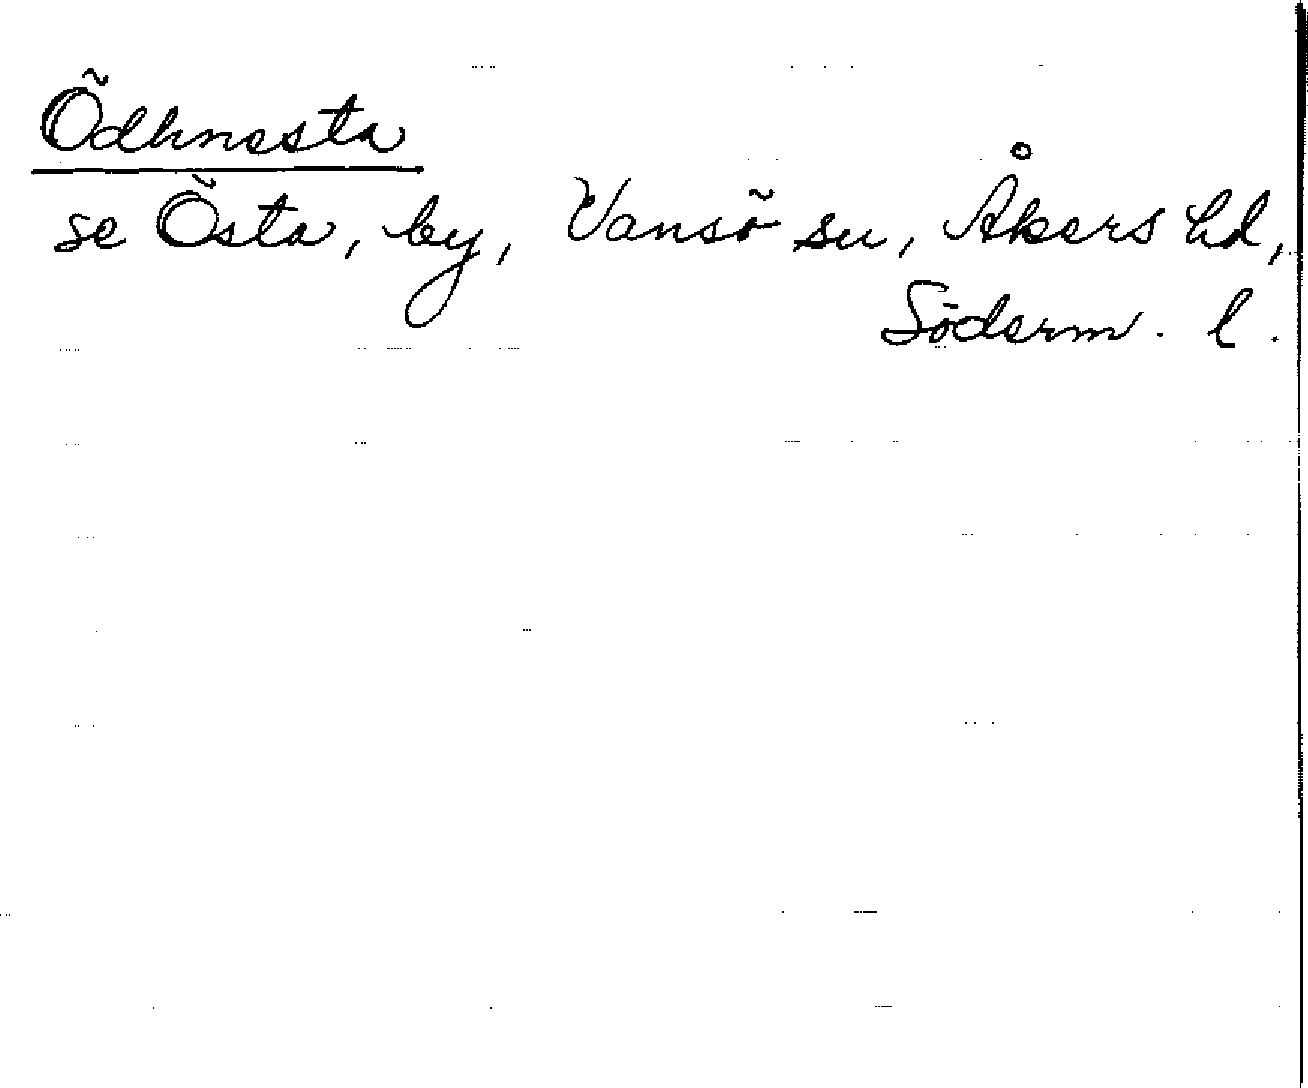 Ödhnesta
se Östa, by, Vansö sn, Åkers hd,
Söderm. l.